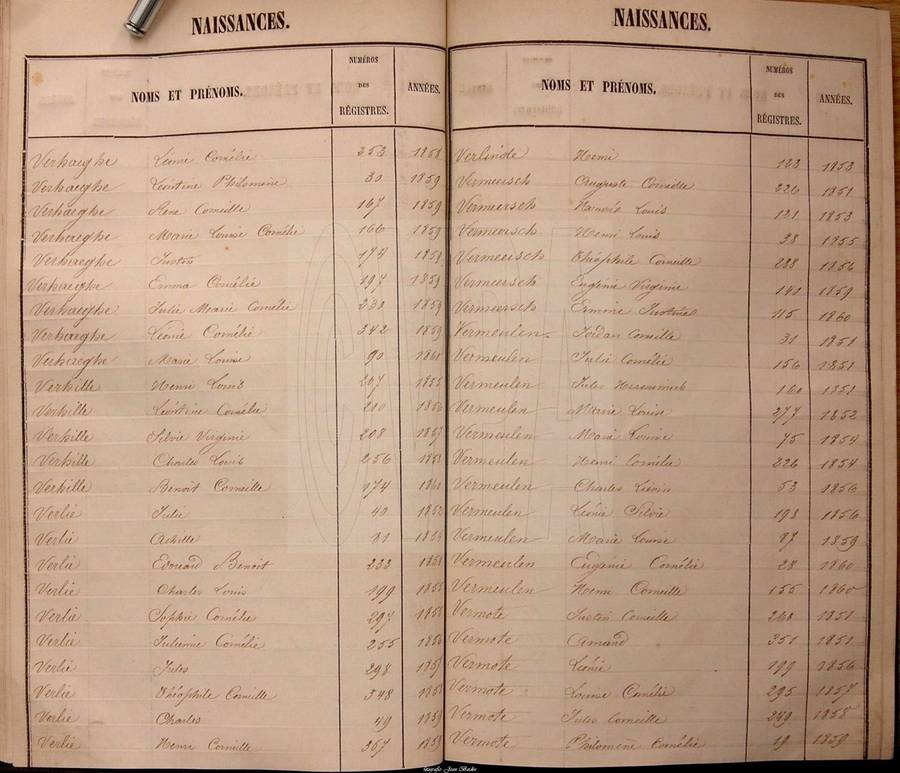 NAISSANCES.
NOMS ET PRÉNOMS. NUMÉROS DES RÉGISTRES. ANNÉES.
Verhaeghe Léonie Cornélie 253 1858
Verhaeghe Léontine Philomène 30 1859
Verhaeghe Rene Corneille 167 1859
Verhaeghe Marie Louise Cornélie 166 1859
Verhaeghe Justin 174 1859
Verhaeghe Emma Cornélie 197 1859
Verhaeghe Julie Marie Cornélie 230 1859
Verhaeghe Léonie Cornélie 342 1859
Verhaeghe Marie Louise 90 1860
Verhille Henri Louis 207 1855
Verhille Léontine Cornélie 210
Verhille Silvie Virginie 208 1857
Verhille Charles Louis 256 1858
Verhille Benoit Corneille 174 1860
Verlie Julie 40
Verlie Achille 81
Verlie Edouard Benoit 233
Verlie Charles Louis 199 1855
Verlie Sophie Cornélie 297
Verlie Julienne Cornélie 255 1856
Verlie Jules 298 1857
Verlie Théophile Corneille 348 1858
Verlie Charles 49 1859
Verlie Henri Corneille 367 1859
NAISSANCES.
NOMS ET PRÉNOMS. NUMÉROS DES RÉGISTRES. ANNÉES.
Verlinde Henri 123 1853
Vermeersch Auguste Corneille 226 1851
Vermeersch Louis 121 1853
Vermeersch Henri Louis 38 1855
Vermeersch Théophile Corneille 288 1856
Vermeersch Eugénie Virginie 142 1859
Vermeersch Ermine Justine 115 1860
Vermeulen Jordan Corneille 31 1851
Vermeulen Julie Cornélie 156 1851
Vermeulen Jules 160 1851
Vermeulen Marie Louise 277 1852
Vermeulen Marie Louise 75 1854
Vermeulen Henri Cornélie 226 1854
Vermeulen Charles Liévin 53 1856
Vermeulen Léonie Silvie 198 1856
Vermeulen Marie Louise 87 1859
Vermeulen Eugénie Cornélie 28 1860
Vermeulen Henri Corneille 155 1860
Vermote Justin Corneille 260 1851
Vermote Amand 351 1851
Vermote Léonie 199 1856
Vermote Louise Cornélie 295 1857
Vermote Jules Corneille 249 1858
Vermote Philomène Cornélie 19 1859